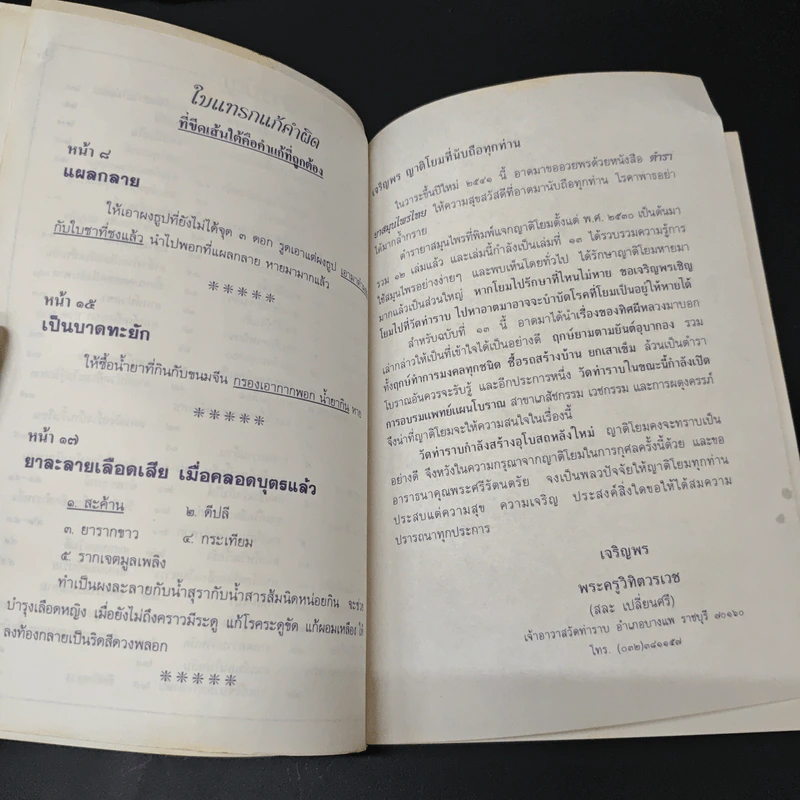 ใบแทรกแก้คำผิด
ที่ขีดเส้นใต้คือคำแก้ที่ถูกต้อง
หน้า ๘
แผลกลาย
ให้เอาผงธูปที่ยังไม่ได้จุด ๓ ดอก รูดเอาแต่ผงธูป
กับใบชาที่ชงแล้ว นำไปพอกที่แผลกลาย หายมามากแล้ว
*****
หน้า ๑๕
เป็นบาดทะยัก
ให้ซื้อน้ำยาที่กินกับขนมจีน กรองเอากากพอก น้ำยากิน หาย
*****
หน้า ๑๗
ยาละลายเลือดเสีย เมื่อคลอดบุตรแล้ว
๑. สะค้าน ๒. ดีปลี
๓. ยารากขาว ๔ กระเทียม
๕ รากเจตมูลเพลิง
ทำเป็นผงละลายกับน้ำสุรากับน้ำสารส้มนิดหน่อยกิน จะช่วย
บำรุงเลือดหญิง เมื่อยังไม่ถึงคราวมีระดู แก้โรคระดูขัด แก้ผอมเหลือง
ลงท้องกลายเป็นริดสีดวงพลอก
*****
เจริญพร ญาติโยมที่นับถือทุกท่าน
ในวาระขึ้นปีใหม่ ๒๕๔๑ นี้ อาตมาขออวยพรด้วยหนังสือ ตำรา
ยาสมุนไพรไทย ให้ความสุขสวัสดีที่อาตมานับถือทุกท่าน โรคาพาธอย่า
ได้มากล้ำกราย
ตำรายาสมุนไพรที่พิมพ์แจกญาติโยมตั้งแต่ พ.ศ. ๒๕๓๐ เป็นต้นมา
รวม ๑๒ เล่มแล้ว และเล่มนี้กำลังเป็นเล่มที่ ๑๓ ได้รวบรวมความรู้การ
ใช้สมุนไพรอย่างง่ายๆ และพบเห็นโดยทั่วไป ได้รักษาญาติโยมหายมา
มากแล้วเป็นส่วนใหญ่ หากโยมไปรักษาที่ไหนไม่หาย ขอเจริญพรเชิญ
โยมไปที่วัดท่าราบ ไปหาอาตมาอาจจะบำบัดโรคที่โยมเป็นอยู่ให้หายได้
สำหรับฉบับที่ ๑๓ นี้ อาตมาได้นำเรื่องของทิศผีหลวงมาบอก
เล่ากล่าวให้เป็นที่เข้าใจได้เป็นอย่างดี ฤกษ์ยามตามยันต์อุบากอง รวม
ทั้งฤกษ์ทำการมงคลทุกชนิด ซื้อรถสร้างบ้าน ยกเสาเข็ม ล้วนเป็นตำรา
โบราณอันควรจะรับรู้ และอีกประการหนึ่ง วัดท่าราบในขณะนี้กำลังเปิด
การอบรมแพทย์แผนโบราณ สาขาเภสัชกรรม เวชกรรม และการผดุงครรภ์
จึงน่าที่ญาติโยมจะให้ความสนใจในเรื่องนี้
วัดท่าราบกำลังสร้างอุโบสถหลังใหม่ ญาติโยมคงจะทราบเป็น
อย่างดี จึงหวังในความกรุณาจากญาติโยมในการกุศลครั้งนี้ด้วย และขอ
อาราธนาคุณพระศรีรัตนตรัย จงเป็นพลวปัจจัยให้ญาติโยมทุกท่าน
ประสบแต่ความสุข ความเจริญ ประสงค์สิ่งใดขอให้ได้สมความ
ปรารถนาทุกประการ
เจริญพร
พระครูวิทิตวรเวช
(สละ เปลี่ยนศรี)
เจ้าอาวาสวัดท่าราบ อำเภอบางแพ ราชบุรี ๗๐๑๖๐
โทร. (๐๓๒)๓๘๑๑๕๗